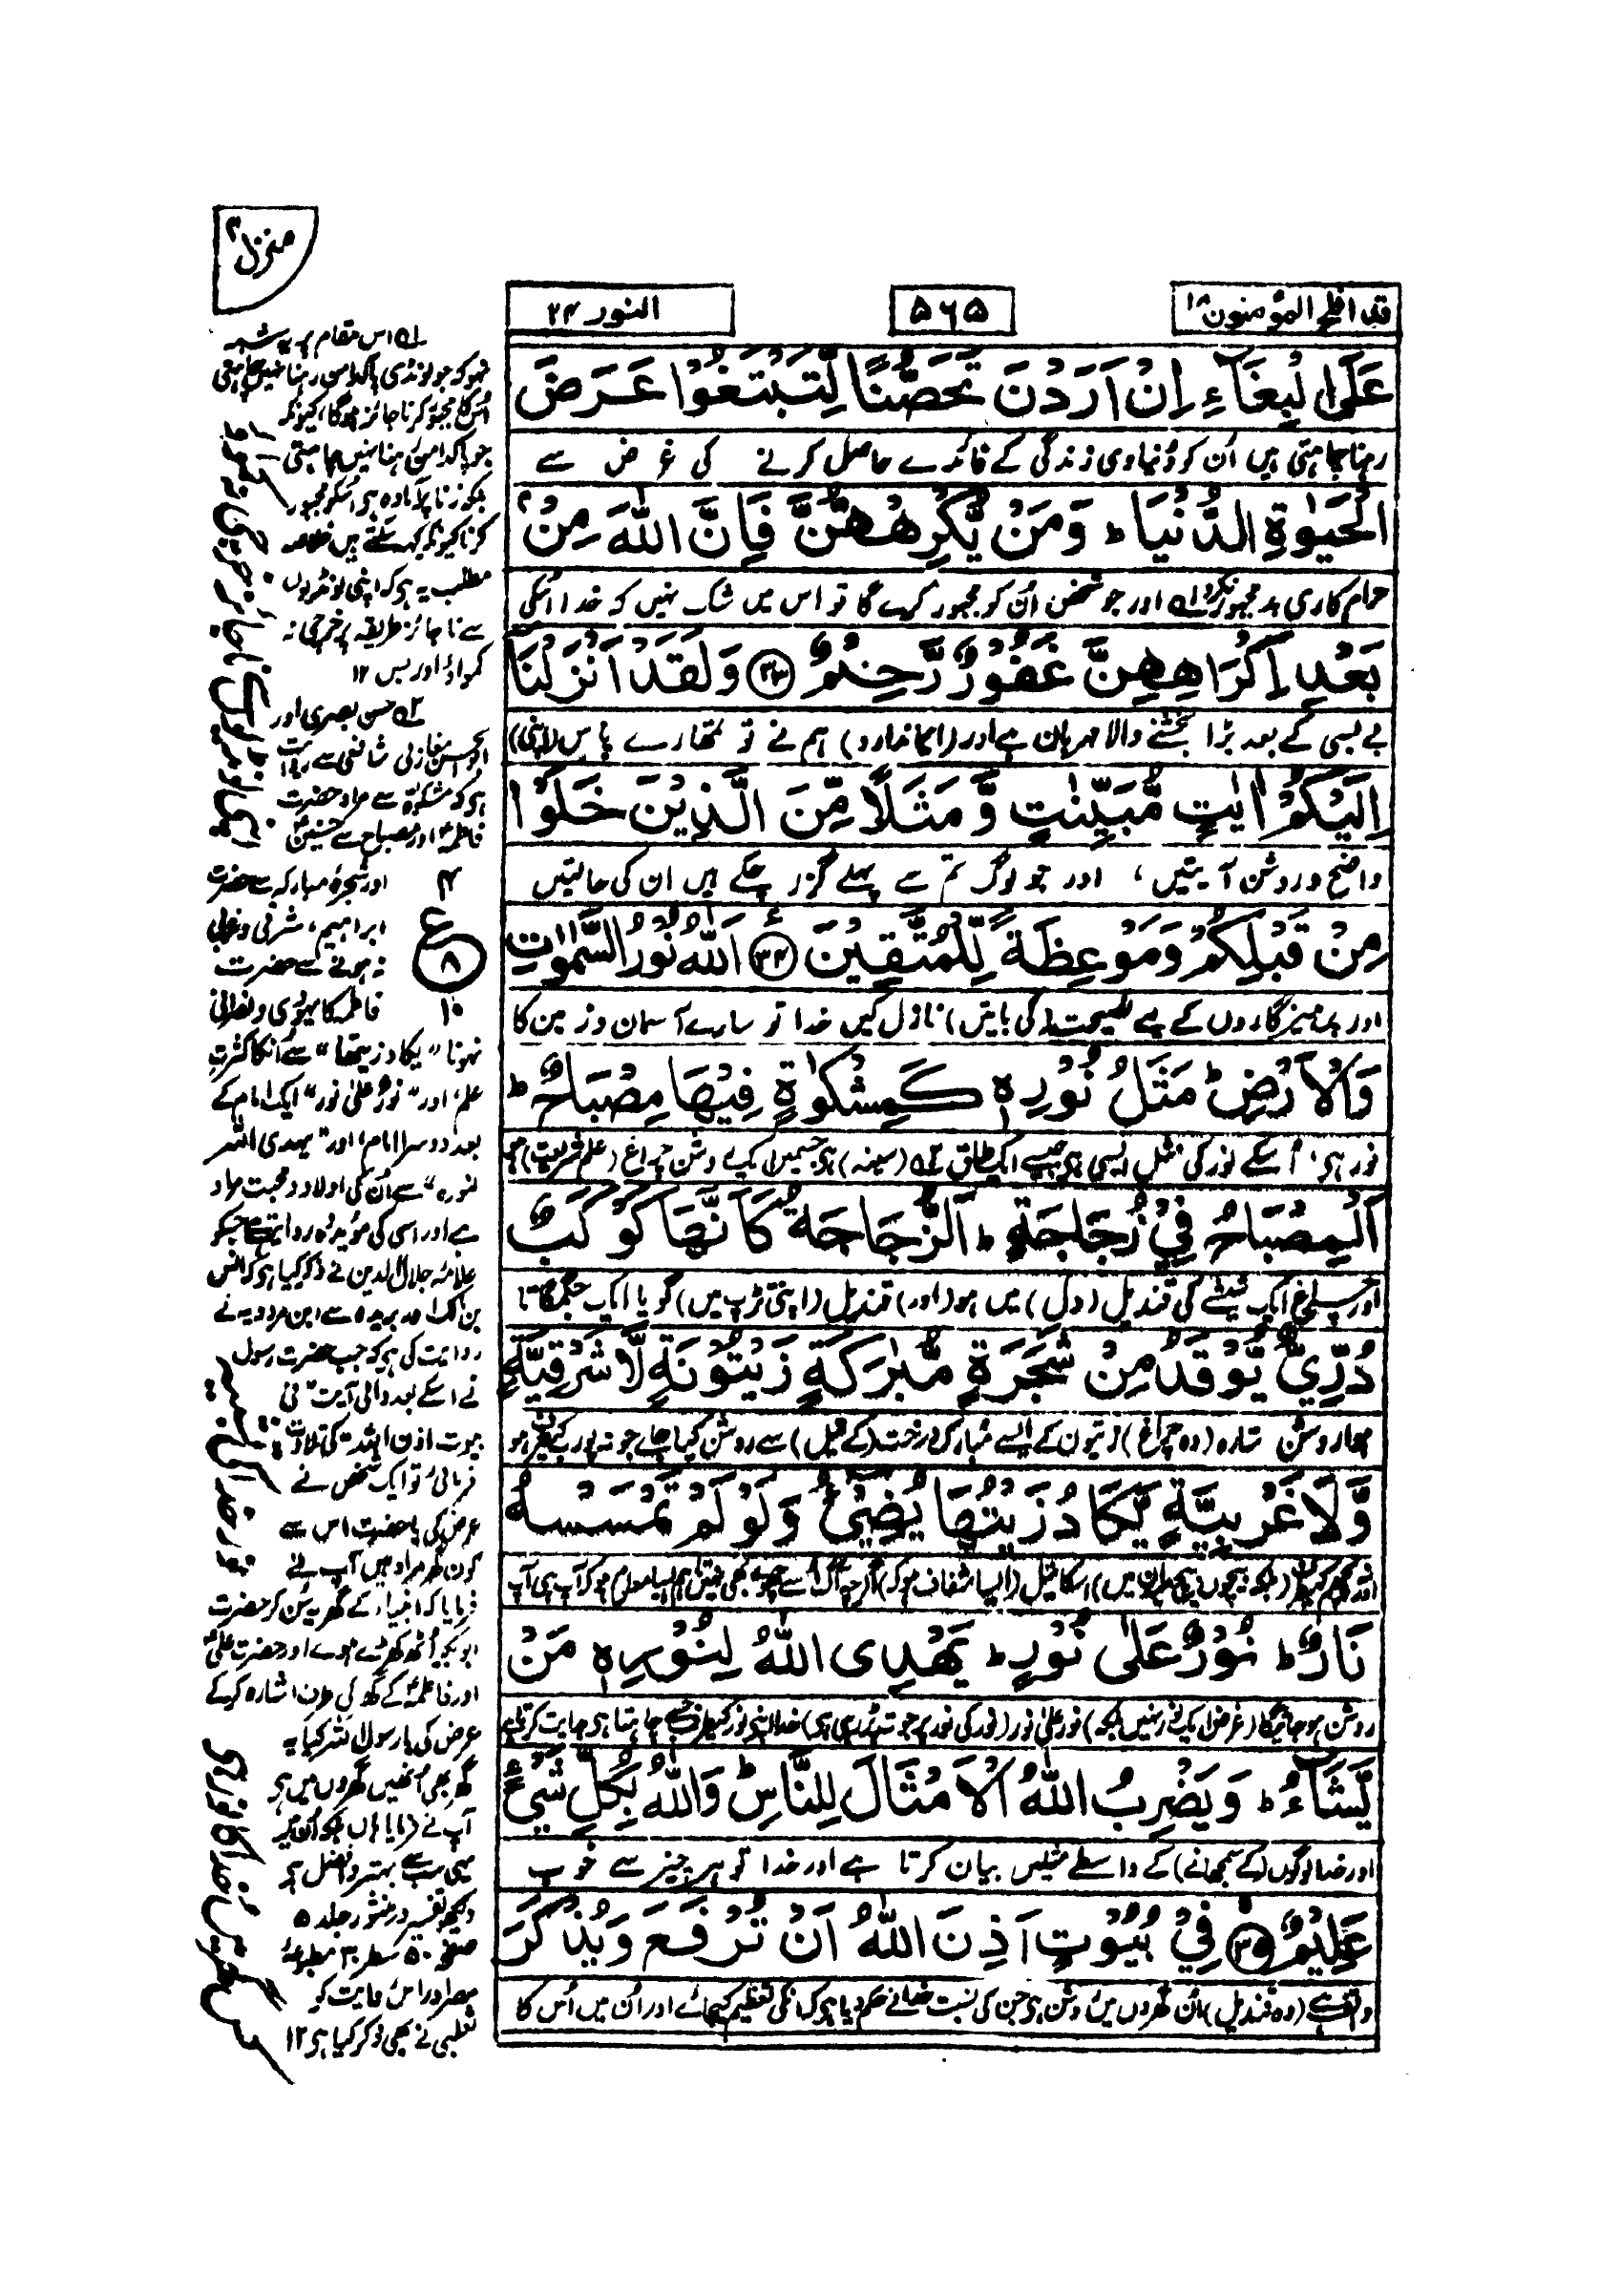 منزل ۴
قد افلح المؤمنون ۱۸
۵۶۵
النور ۲۴
عَلَى الْبِغَآءِ اِنْ اَرَدْنَ تَحَصُّنًا لِّتَبْتَغُوْا عَرَضَ
رہنا چاہتی ہیں اُن کو دُنیاوی زندگی کے فائدے حاصل کرنے کی غرض سے
الْحَيٰوةِ الدُّنْيَا ؕ وَمَنْ يُّكْرِهْهُّنَّ فَاِنَّ اللّٰهَ مِنْۢ
حرام کاری پر مجبور نکرو ۱؎ اور جو شخص اُن کو مجبور کرے گا تو اس میں شک نہیں کہ خدا اُسکی
بَعْدِ اِكْرَاهِهِنَّ غَفُوْرٌ رَّحِيْمٌ ۳۳ وَلَقَدْ اَنْزَلْنَاۤ
بے بسی کے بعد بڑا بخشنے والا مہربان ہے اور (ایماندارو) ہم نے تو تمھارے پاس (اپنی)
اِلَيْكُمْ اٰيٰتٍ مُّبَيِّنٰتٍ وَّمَثَلًا مِّنَ الَّذِيْنَ خَلَوْا
واضح و روشن آیتیں، اور جو لوگ تم سے پہلے گزر چکے ہیں ان کی حالتیں
مِنْ قَبْلِكُمْ وَمَوْعِظَةً لِّلْمُتَّقِيْنَ ۳۴ اَللّٰهُ نُوْرُ السَّمٰوٰتِ
اور پرہیزگاروں کے لیے نصیحت (کی باتیں) نازل کیں خدا تو سارے آسمان و زمین کا
وَالْاَرْضِ ؕ مَثَلُ نُوْرِهٖ كَمِشْكٰوةٍ فِيْهَا مِصْبَاحٌ ؕ
نور ہی، اُسکے نور کی مثل ایسی ہی جیسے ایک طاق ۲؎ (سینہ) ہی جسمیں ایک روشن چراغ (علم شریعت) ہو
اَلْمِصْبَاحُ فِيْ زُجَاجَةٍ ؕ اَلزُّجَاجَةُ كَاَنَّهَا كَوْكَبٌ
اور چراغ ایک شیشے کی قندیل (دل) میں ہو (اور) قندیل (اپنی تڑپ میں) گویا ایک جگمگاتا
دُرِّيٌّ يُّوْقَدُ مِنْ شَجَرَةٍ مُّبٰرَكَةٍ زَيْتُوْنَةٍ لَّا شَرْقِيَّةٍ
ہوا روشن ستارہ (وہ چراغ) زیتون کے ایسے مبارک درخت (کے تیل) سے روشن کیا جائے جو نہ پورب کیطرف ہو
وَّلَا غَرْبِيَّةٍ يَّكَادُ زَيْتُهَا يُضِيْٓءُ وَلَوْ لَمْ تَمْسَسْهُ
اور نہ پچھم کیطرف (بلکہ بیچوں بیچ میدان میں) اسکا تیل (ایسا شفاف ہو کہ) اگرچہ آگ اُسے چھوئے بھی نہیں تاہم ایسا معلوم ہو کہ آپ ہی آپ
نَارٌ ؕ نُوْرٌ عَلٰى نُوْرٍ ؕ يَهْدِى اللّٰهُ لِنُوْرِهٖ مَنْ
روشن ہو جائیگا (غرض ایک نور نہیں بلکہ) نور علیٰ نور (نور کی نور پر جوت پڑ رہی ہی) خدا اپنے نور کیطرف جسے چاہتا ہی ہدایت کرتا ہی
يَّشَآءُ ؕ وَيَضْرِبُ اللّٰهُ الْاَمْثَالَ لِلنَّاسِ ؕ وَاللّٰهُ بِكُلِّ شَيْءٍ
اور خدا لوگوں (کے سمجھانے) کے واسطے مثلیں بیان کرتا ہے اور خدا تو ہر چیز سے خوب
عَلِيْمٌ ۳۵ فِيْ بُيُوْتٍ اَذِنَ اللّٰهُ اَنْ تُرْفَعَ وَيُذْكَرَ
واقف ہے (وہ قندیل) اُن گھروں میں روشن ہی جن کی نسبت خدا نے حکم دیا ہی کہ اُنکی تعظیم کیجائے اور اُن میں اُس کا
۱؎ اس مقام پر یہ شبہہ
نہو کہ جو لونڈی پاکدامن رہنا نہیں چاہتی
اُسکا مجبور کرنا جائز ہوگا، کیونکہ
جو پاکدامن رہنا نہیں چاہتی
بلکہ زنا پر آمادہ ہی اُسکو مجبور
کرنا کیونکر کہہ سکتے ہیں خلاصہ
مطلب یہ ہی کہ اپنی لونڈیوں
سے ناجائز طریقہ پر خرچی نہ
کمواؤ اور بس ۱۲
۲؎ حسن بصری اور
ابوالحسن مغازلی شافعی سے روایت
ہی کہ مشکوٰۃ سے مراد حضرت
فاطمہؑ اور مصباح سے حسنینؑ
اور شجرۂ مبارکہ سے حضرت
ابراہیم، شرقی و غربی
نہ ہونے سے حضرت
فاطمہ کا یہودی و نصرانی
نہونا "یکاد زیتھا" سے اُنکا کثرت
علم، اور "نورٌ علیٰ نور" ایک امام کے
بعد دوسرا امام، اور "یہدی اللہ
لنورہ" سے اُن کی اولاد و محبت مراد
ہے اور اسی کی مؤید وہ روایت ہے جسکو
علامہ جلال الدین نے ذکر کیا ہی کہ انس
بن مالک اور بریدہ سے ابن مردویہ نے
روایت کی ہی کہ جب حضرت رسول
نے اسکے بعد والی آیت "فی
بیوت اذن اللہ" کی تلاوت
فرمائی تو ایک شخص نے
عرض کی یا حضرت اس سے
کون گھر مراد ہیں آپ نے
فرمایا کہ انبیاء کے گھر یہ سُن کر حضرت
ابوبکر اُٹھ کھڑے ہوئے اور حضرت علیؑ
اور فاطمہؑ کے گھر کی طرف اشارہ کرکے
عرض کی یا رسول اللہ کیا یہ
گھر بھی اُنھیں گھروں میں ہی
آپ نے فرمایا ہاں بلکہ اُن میں
سبھی سے بہتر و افضل ہی
دیکھو تفسیر درمنثور جلد ۵
صفحہ ۵۰ سطر ۳۰ مطبوعۂ
مصر اور اس روایت کو
ثعلبی نے بھی ذکر کیا ہی ۱۲
۴
ع
۸
۱۰